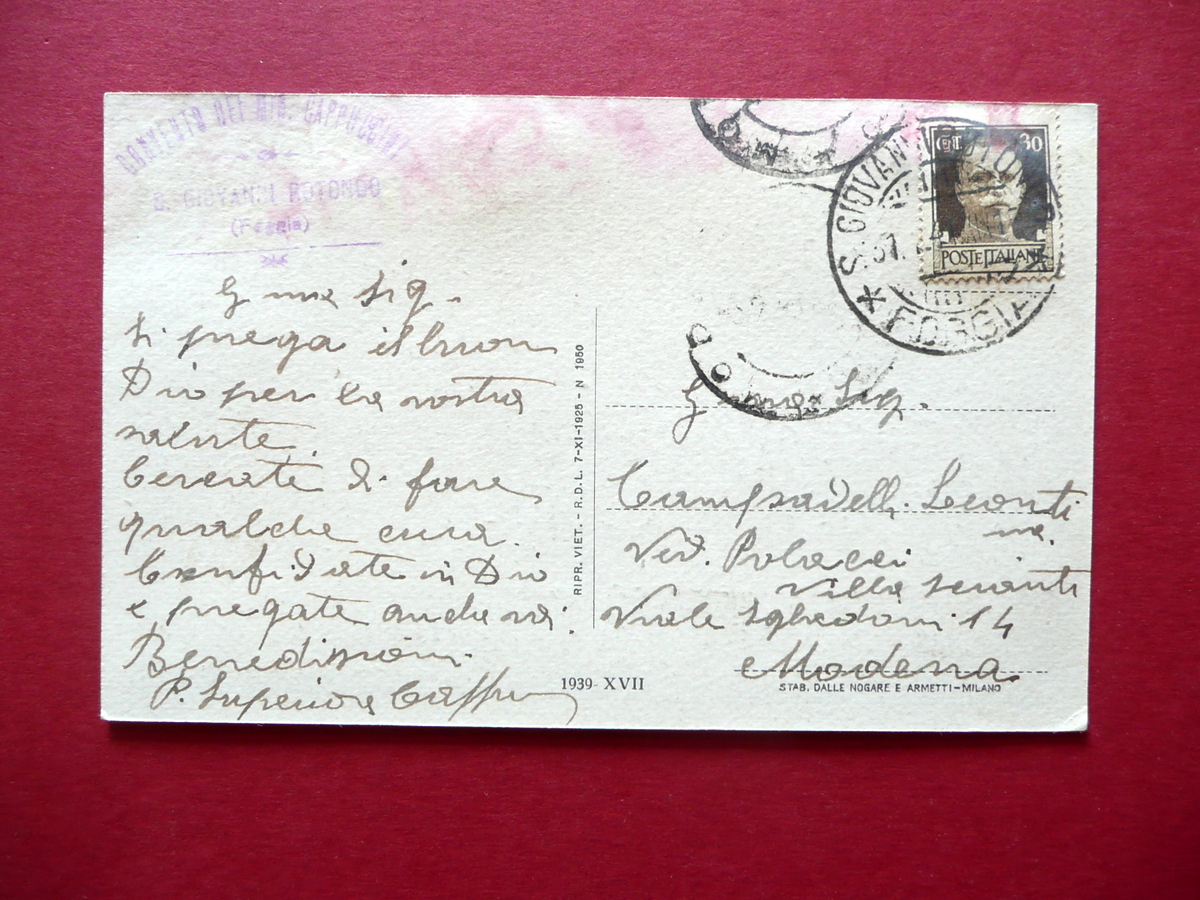 CONVENTO DEI MIN. CAPPUCCINI
S. GIOVANNI ROTONDO
(Foggia)
G ma Sig.
Si prega il buon
Dio per la vostra
salute.
Cercate di fare
qualche cura.
Confidate in Dio
e pregate anche voi.
Benedizioni.
P. Superiore Capp
RIPR. VIET. - R.D.L. 7-XI-1925 - N 1950
1939 - XVII
S. GIOVANNI ROTONDO
* FOGGIA
CENT. 30
POSTE ITALIANE
G ma Sig.
Campadelli Leonti
na.
Vid. Polacci
Villa
Viale 14
Modena
STAB. DALLE NOGARE E ARMETTI - MILANO